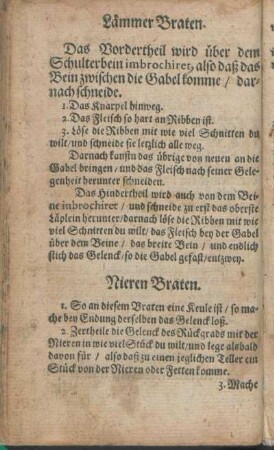 Lämmer Braten.
Das Vordertheil wird über dem
Schulterbein imbrochiret, also daß das
Bein zwischen die Gabel komme / dar-
nach schneide.
1. Das Knarpel hinweg.
2. Das Fleisch so hart an Ribben ist.
3. Löse die Ribben mit wie viel Schnitten du
wilt / und schneide sie letzlich alle weg.
Darnach kanstu das übrige von neuen an die
Gabel bringen / und das Fleisch nach seiner Gele-
genheit herunter schneiden.
Das Hindertheil wird auch von dem Bei-
ne imbrochiret / und schneide zu erst das oberste
Läplein herunter / darnach löse die Ribben mit wie
viel Schnitten du wilt / das Fleisch bey der Gabel
über dem Beine / das breite Bein / und endlich
stlich das Gelenck / so die Gabel gefast / entzwey.
Nieren Braten.
1. So an diesem Braten eine Keule ist / so ma-
che bey Endung derselben das Gelenck loß.
2. Zertheile die Gelenck des Rückgrads mit der
Nieren in wie viel Stück du wilt / und lege alsbald
davon für / also daß zu einen jeglichen Teller ein
Stück von der Nieren oder Fetten komme.
3. Mache